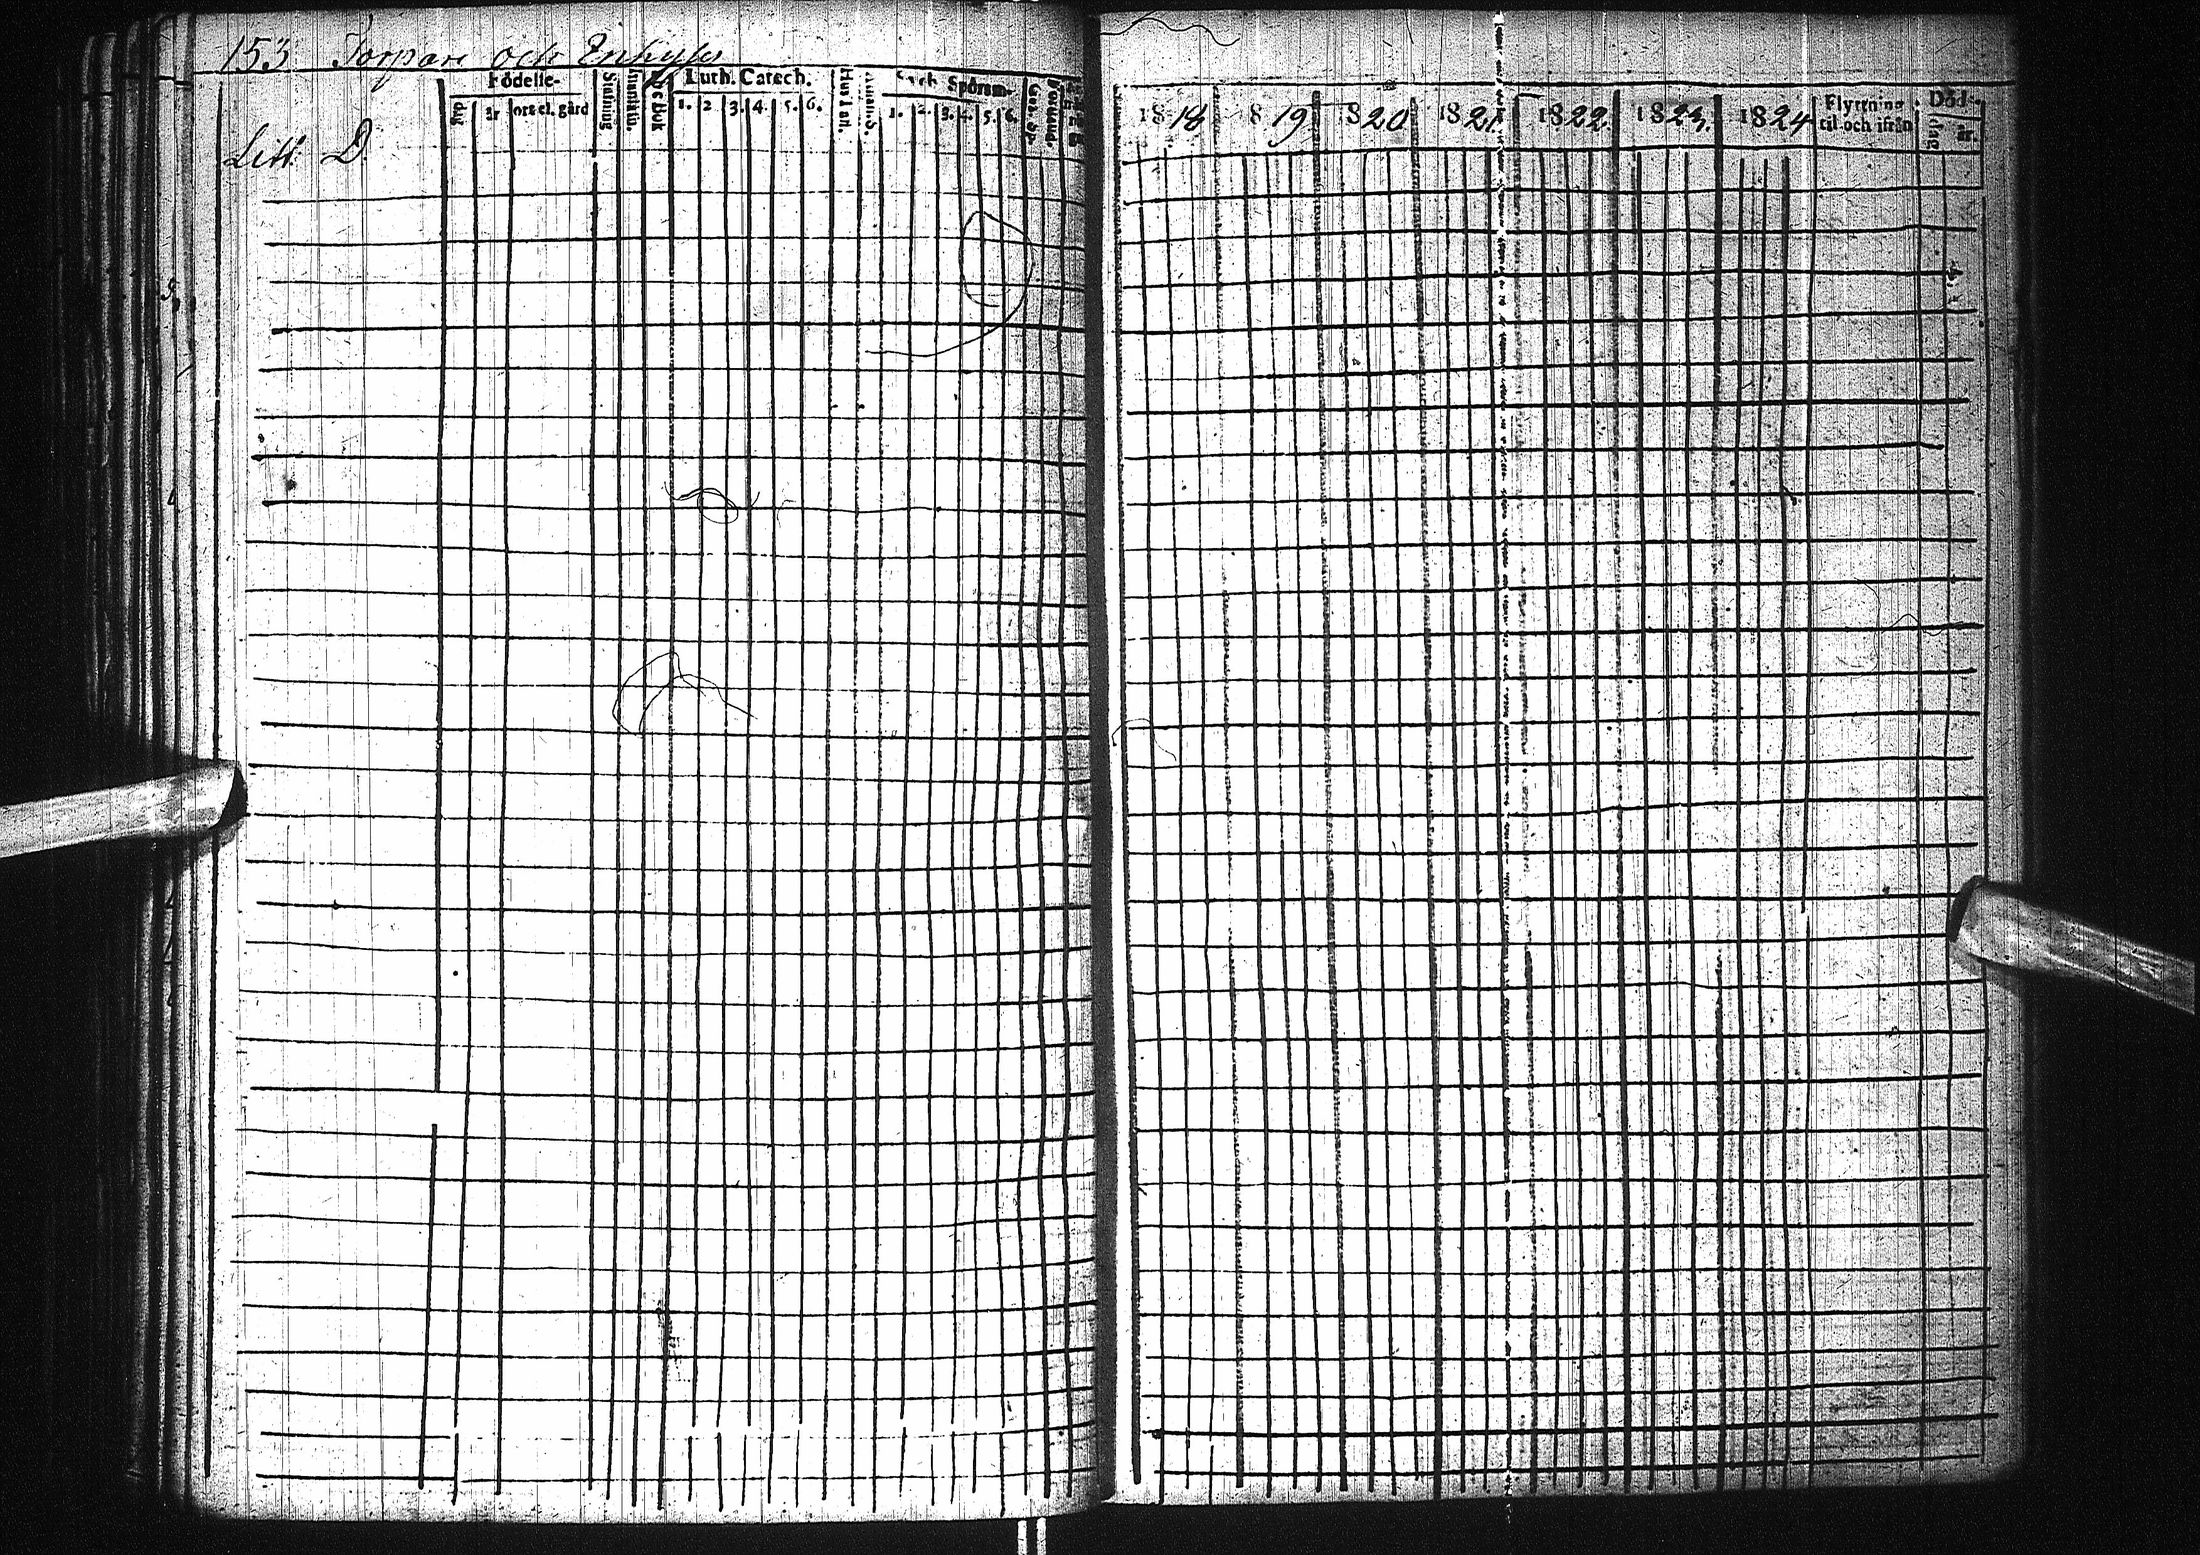 153 Torpare och Enhyses
Födelse-
dag
år
ort el. gård
Stafning
Innantill.
A b c Bok
Luth. Catech.
1. 2 3. 4. 5. 6.
Hus T afl.
Spörsm.
1. 2. 3. 4. 5. 6.
Litt. D.
1818 1819 1820 1821. 1822. 1823. 1824
Flyttning
til och ifrån
Död-
dag
år.